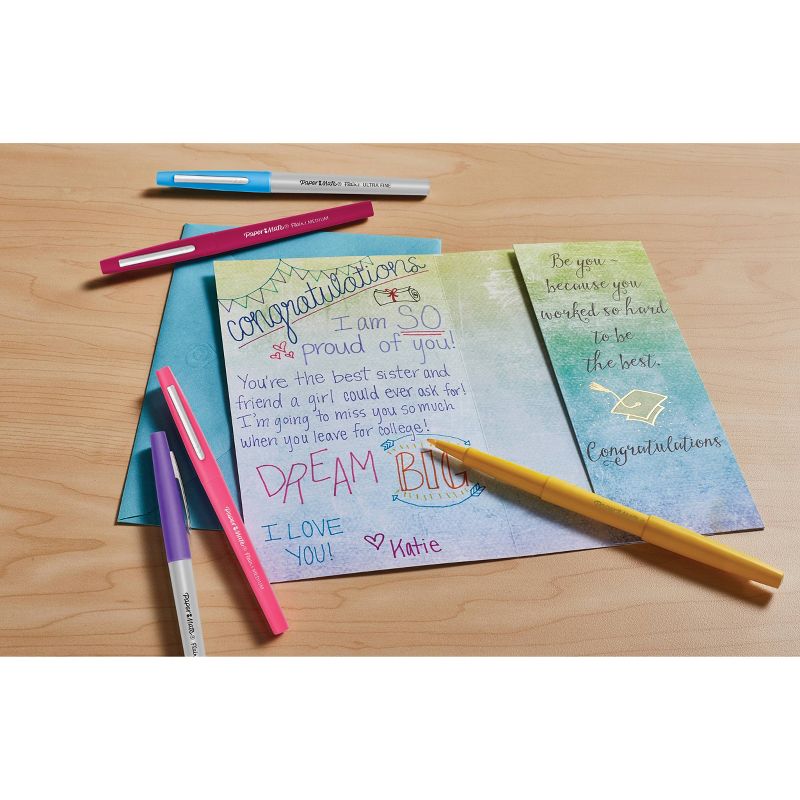 Paper Mate® Flair. ULTRA FINE
Paper Mate® Flair. MEDIUM
congratulations
I am SO
proud of you!
You're the best sister and
friend a girl could ever ask for!
I'm going to miss you so much
when you leave for college!
DREAM BIG
I LOVE
YOU!
Katie
Be you -
because you
worked so hard
to be
the best.
Congratulations
Paper Mate® Flair. MEDIUM
Paper Mate® Flair